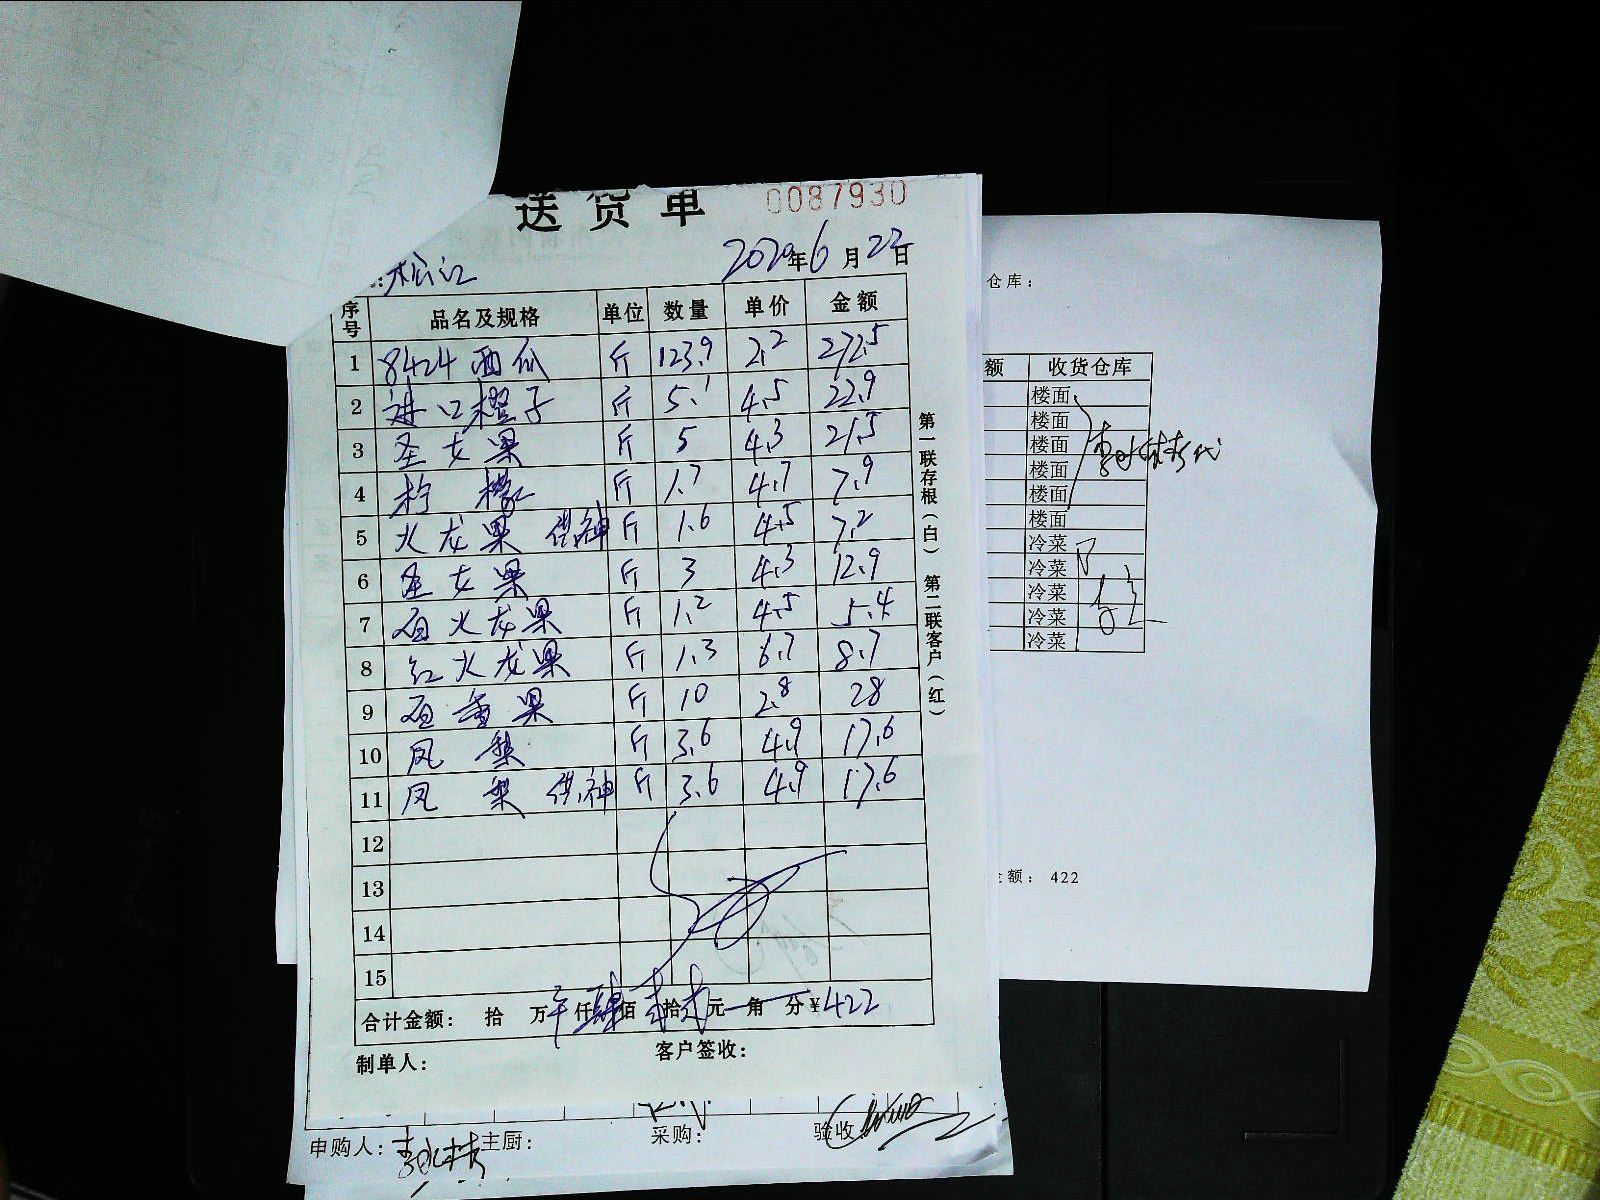 送货单 0087930
松江 2020年6月22日
序号 品名及规格 单位 数量 单价 金额
1 8424西瓜 斤 123.9 2.2 272.5
2 进口橙子 斤 5.1 4.5 22.9
3 圣女果 斤 5 4.3 21.5
4 柠檬 斤 1.7 4.7 7.9
5 火龙果 供神 斤 1.6 4.5 7.2
6 圣女果 斤 3 4.3 12.9
7 白火龙果 斤 1.2 4.5 5.4
8 红火龙果 斤 1.3 6.7 8.7
9 百香果 斤 10 2.8 28
10 凤梨 斤 3.6 4.9 17.6
11 凤梨 供神 斤 3.6 4.9 17.6
12
13
14
15
合计金额: 拾 万 仟肆佰贰拾贰元 角 分 ¥422
制单人: 客户签收:
第一联存根(白) 第二联客户(红)
申购人: 主厨: 采购: 验收
仓库:
额 收货仓库
楼面
楼面
楼面
楼面
楼面
楼面
冷菜
冷菜
冷菜
冷菜
冷菜
额: 422